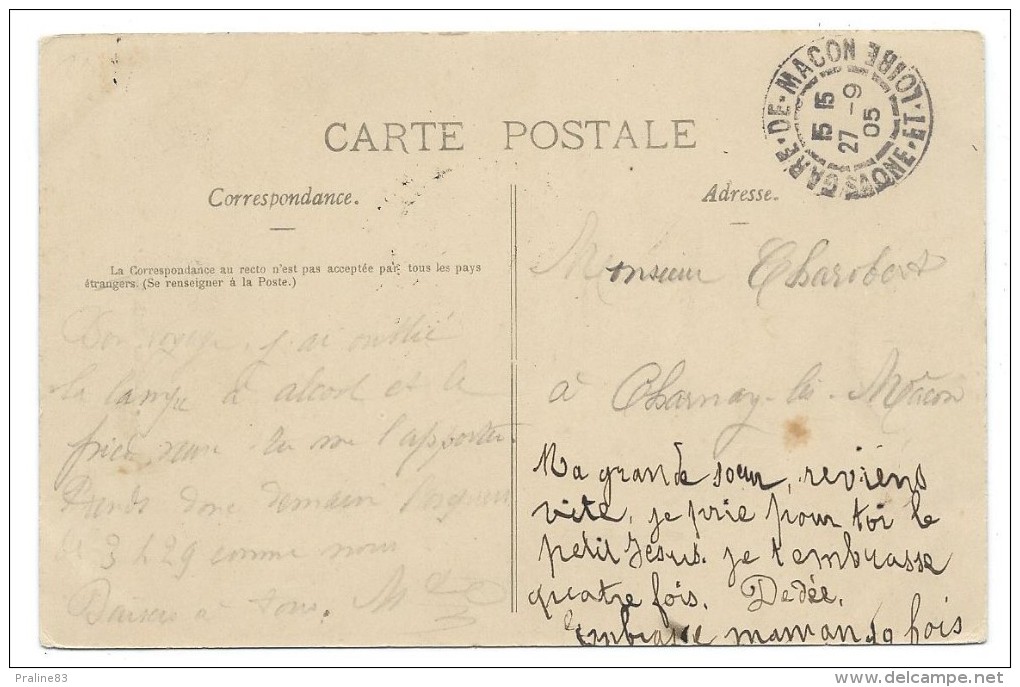 CARTE POSTALE
GARE-DE-MACON
SAONE-ET-LOIRE
15 15
27 -9
05
Correspondance.
La Correspondance au recto n'est pas acceptée par tous les pays
étrangers. (Se renseigner à la Poste.)
Bon voyage, j'ai oublié
la lampe à alcool et le
tu me l'apporter.
donc demain
3 h 29 comme nous
Baisers à tous. M
Adresse.
Monsieur Charobert
à Charnay-les-Mâcon
Ma grande sœur, reviens
vite, je prie pour toi le
petit Jesus. je t'embrasse
quatre fois. Dedée.
embrasse maman 19 fois
© Praline83
delcampe.net